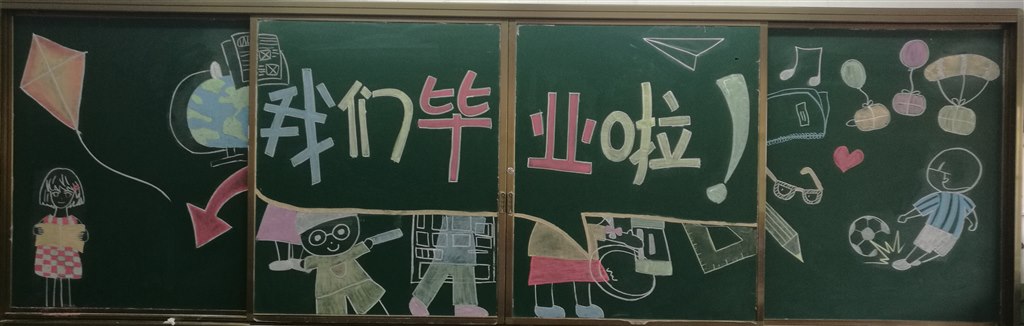 我们毕业啦!